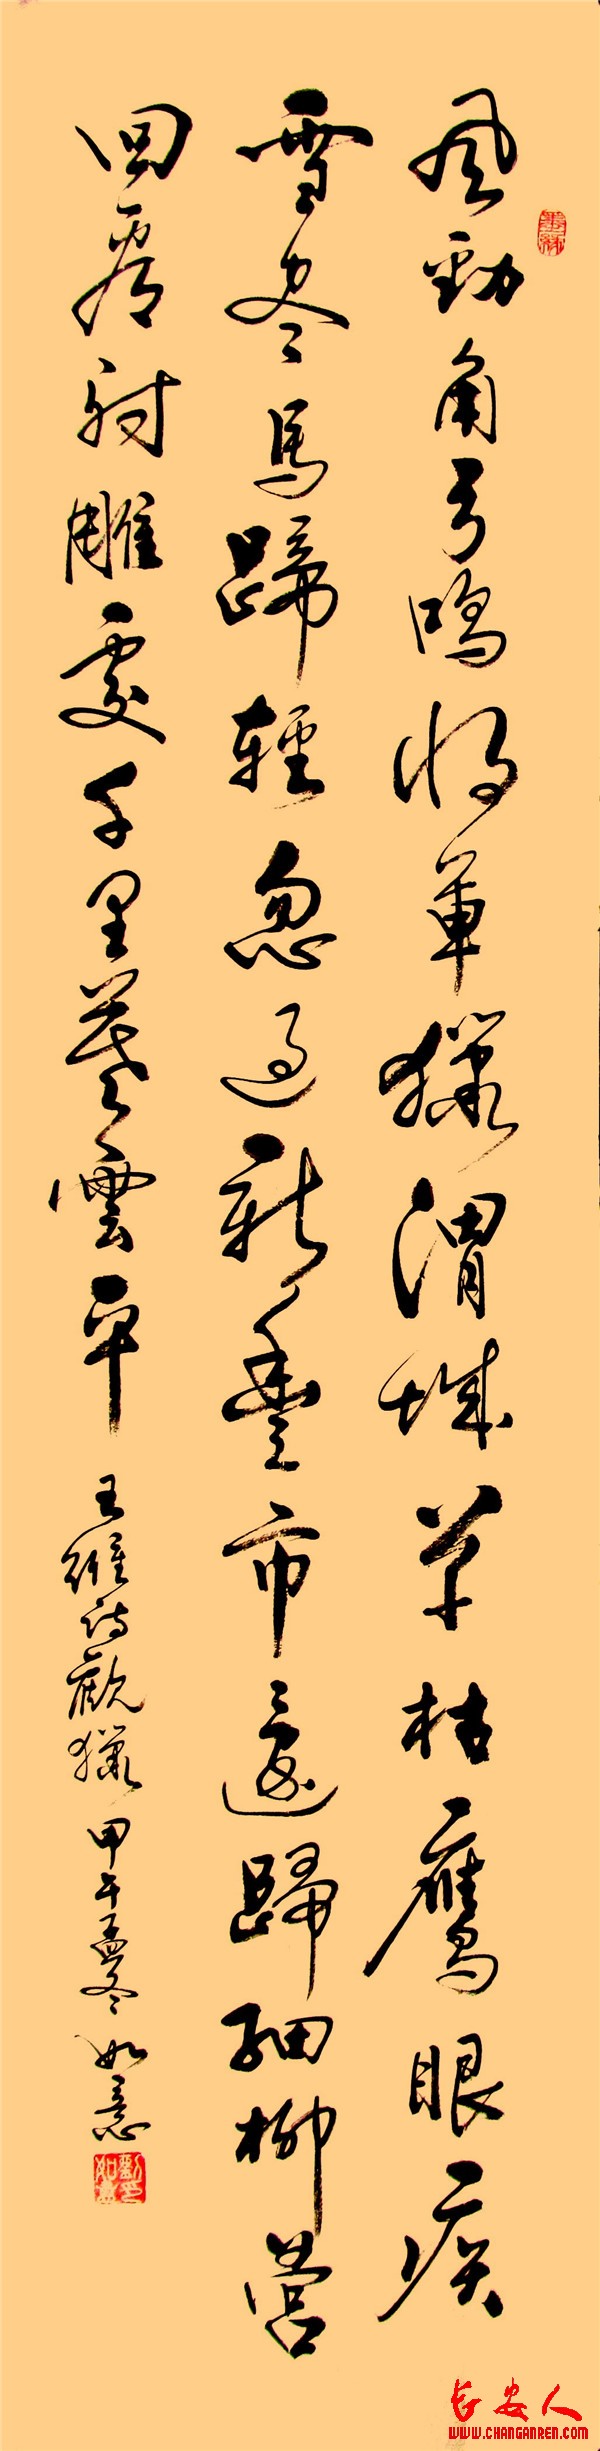 風勁角弓鳴将軍獵渭城草枯鷹眼疾
雪尽馬蹄輕忽过新豐市還歸細柳營
回看射雕處千里暮雲平
王維詩觀獵
甲午孟冬
如意
劉如意印
长安人
WWW.CHANGANREN.COM